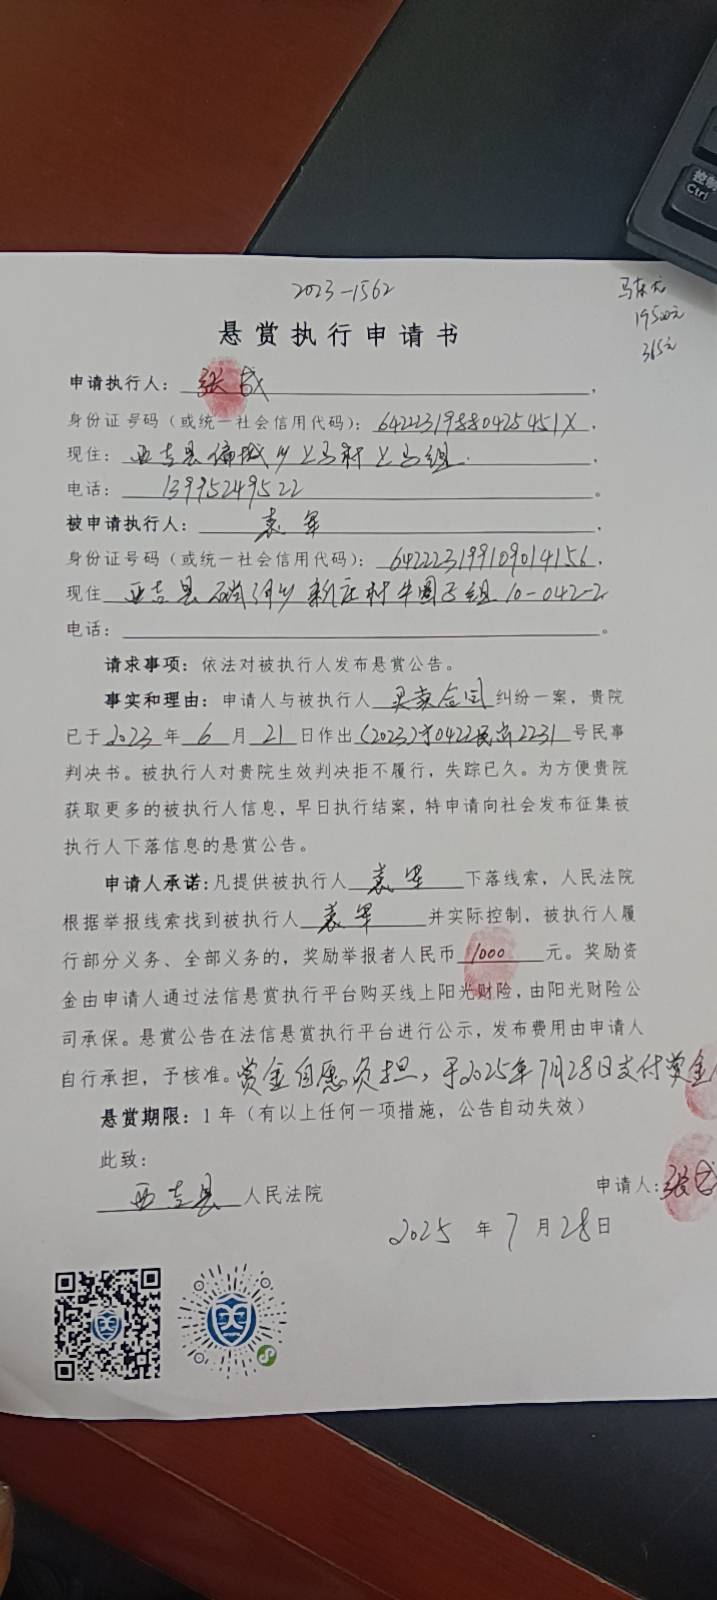 控制
Ctrl
2023-1562
19500元
365元
悬赏执行申请书
申请执行人：张成。
身份证号码（或统一社会信用代码）：64222319880425451X。
现住：西吉县偏城乡上马村上马组。
电话：13995249522。
被申请执行人：袁军。
身份证号码（或统一社会信用代码）：642223199109014156。
现住 西吉县硝河乡新庄村牛圈子组10-042-2
电话：。
请求事项：依法对被执行人发布悬赏公告。
事实和理由：申请人与被执行人 买卖合同 纠纷一案，贵院
已于2023年6月21日作出(2023)宁0422民初2231号民事
判决书。被执行人对贵院生效判决拒不履行，失踪已久。为方便贵院
获取更多的被执行人信息，早日执行结案，特申请向社会发布征集被
执行人下落信息的悬赏公告。
申请人承诺：凡提供被执行人 袁军 下落线索，人民法院
根据举报线索找到被执行人 袁军 并实际控制，被执行人履
行部分义务、全部义务的，奖励举报者人民币 1000 元。奖励资
金由申请人通过法信悬赏执行平台购买线上阳光财险，由阳光财险公
司承保。悬赏公告在法信悬赏执行平台进行公示，发布费用由申请人
自行承担，予核准。赏金自愿负担，于2025年7月28日支付赏金
悬赏期限：1年（有以上任何一项措施，公告自动失效）
此致：
西吉县 人民法院
申请人：张成
2025年7月28日